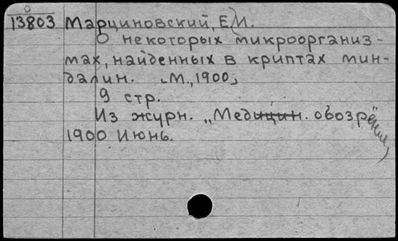 13803 Марциновский, Е.И.
О некоторых микроорганиз-
мах, найденных в криптах мин-
далин. М., 1900,
9 стр.
Из журн. „Медицин. обозрение,
1900 Июнь.